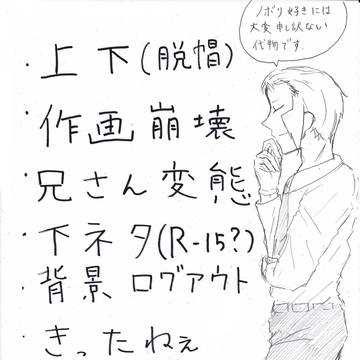 ノボリ好きには
大変申し訳ない
代物です。
・上下(脱帽)
・作画崩壊
・兄さん変態
・下ネタ(R-15?)
・背景ログアウト
・きったねぇ